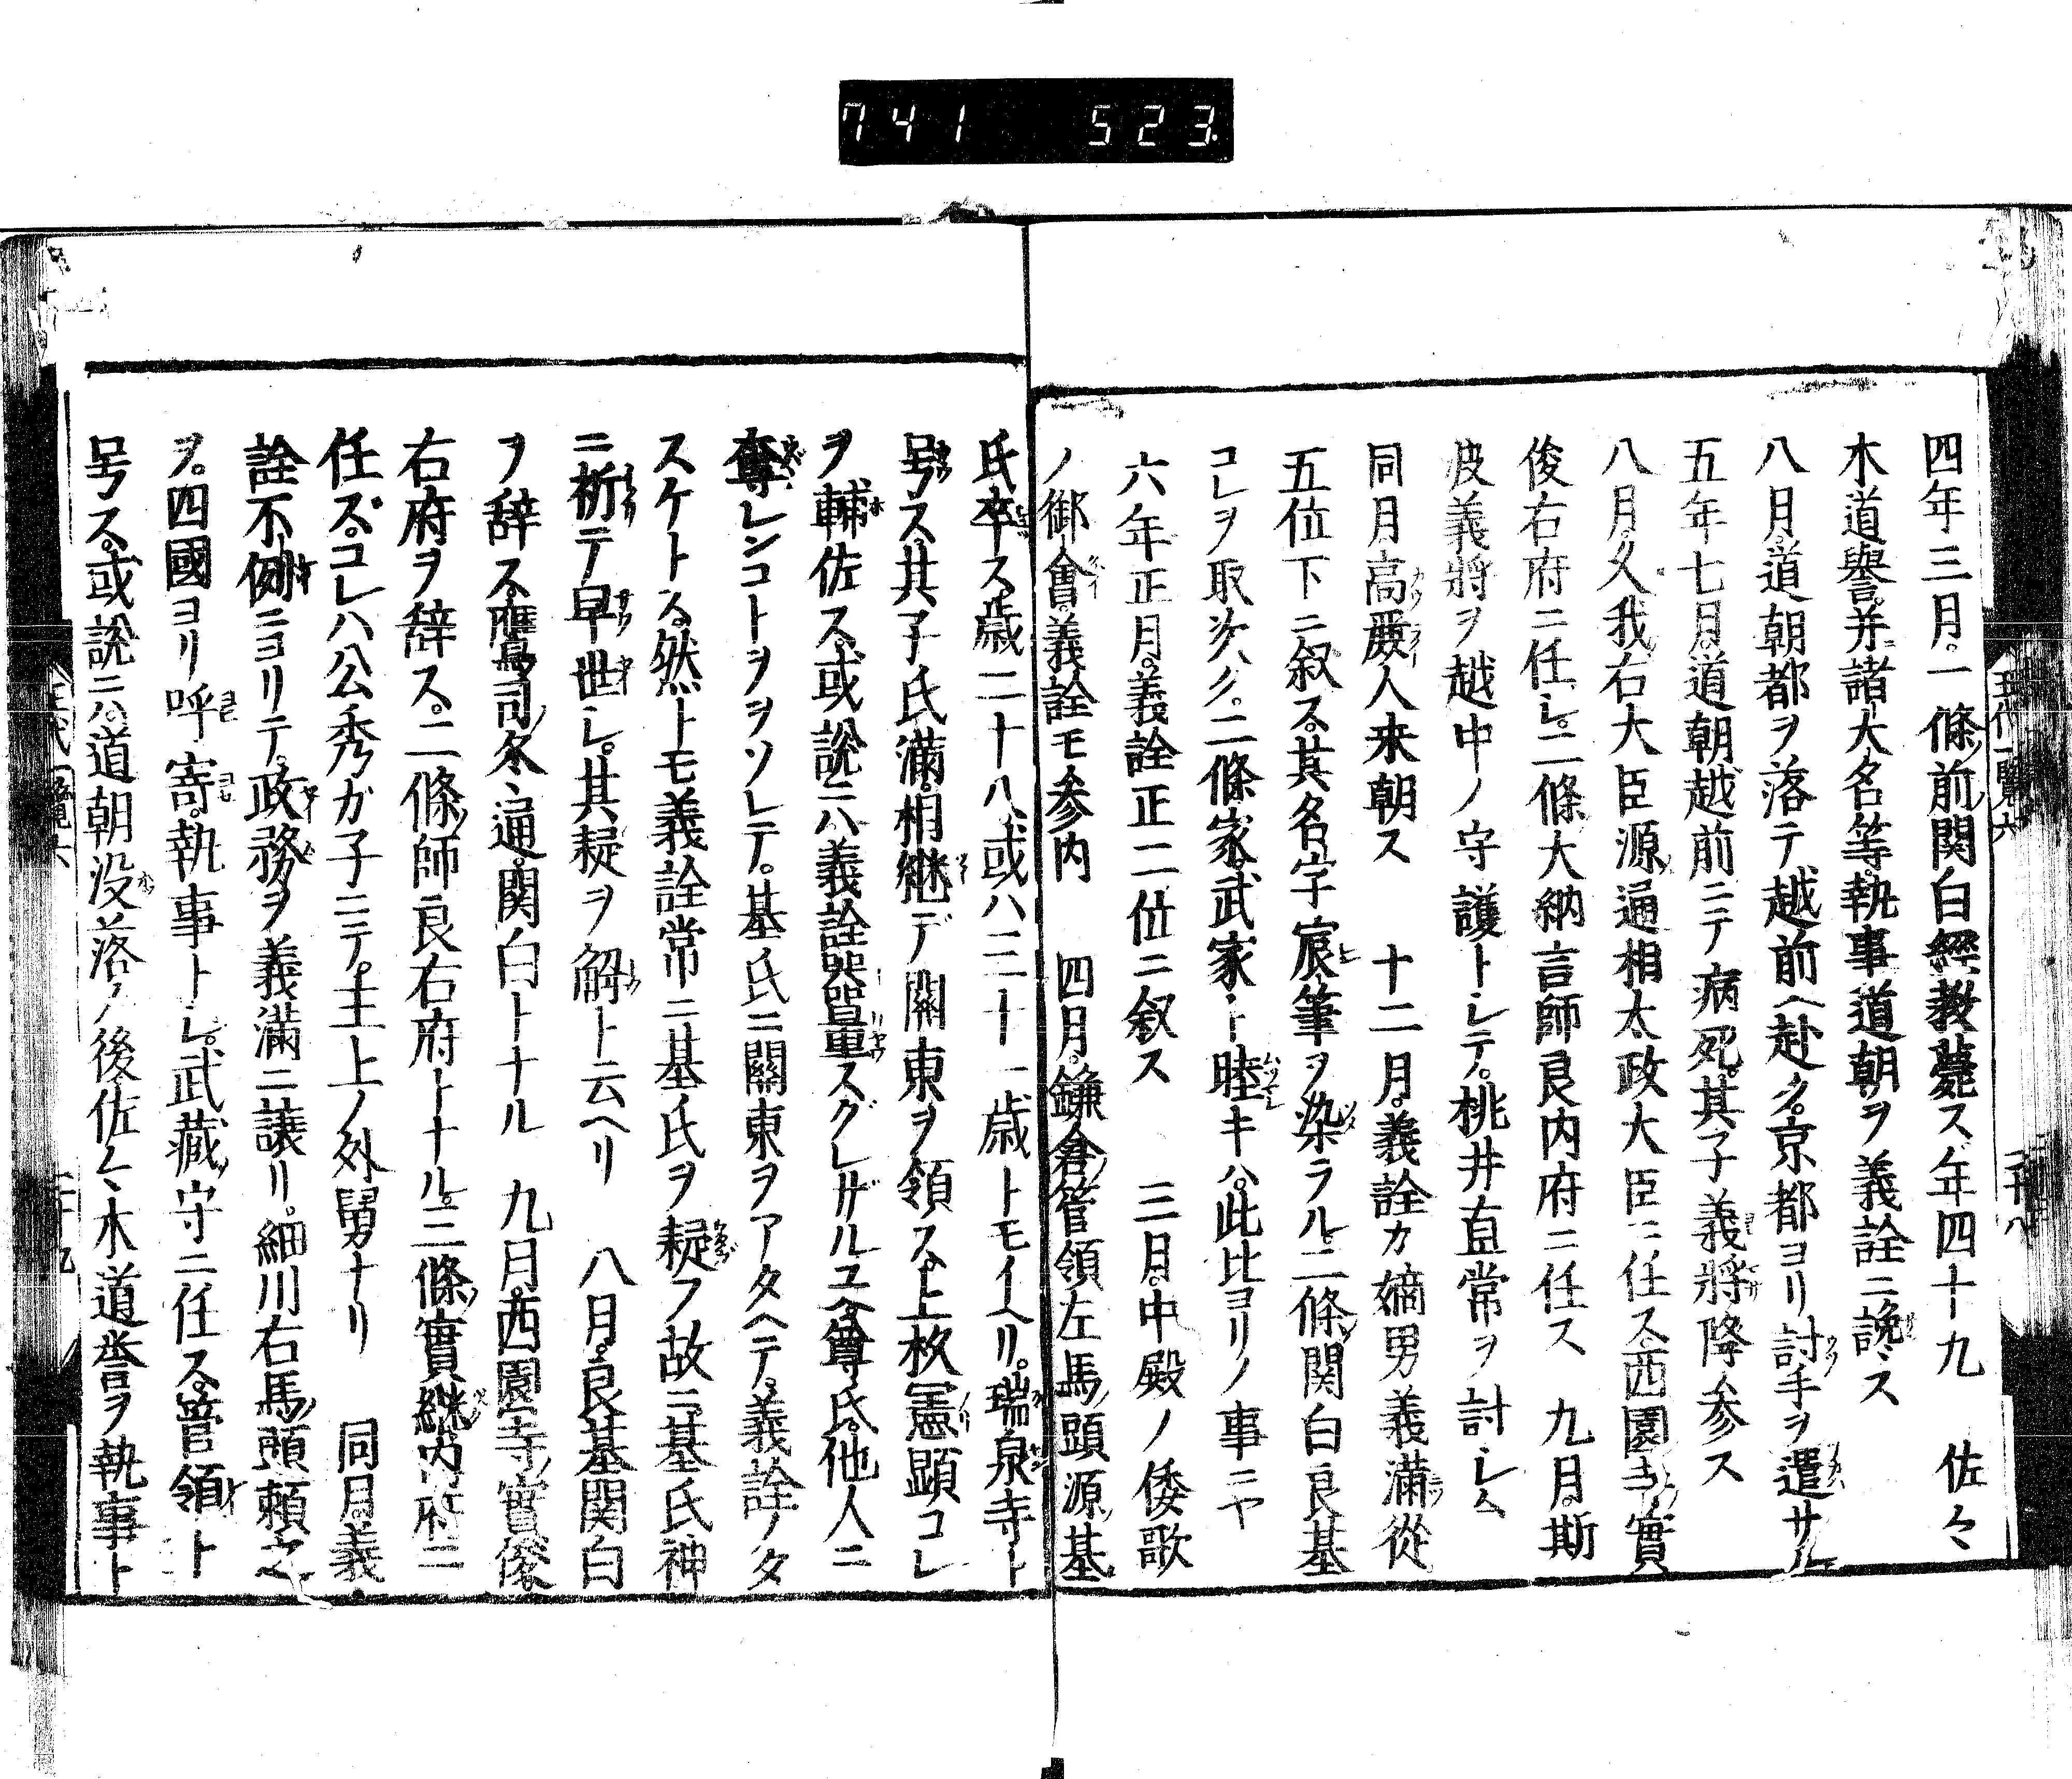 741 523
四年三月。一條前関白經教薨ス。年四十九 佐々
木道譽。并諸大名等。執事道朝ヲ義詮ニ讒ス
八月。道朝都ヲ落テ越前ヘ赴ク。京都ヨリ討手ヲ遣サル
五年七月。道朝越前ニテ病死。其子義將降参ス
八月。久我右大臣源通相太政大臣ニ任ス。西園寺實
俊右府ニ任シ。二條大納言師良内府ニ任ス 九月。斯
波義將ヲ越中ノ守護トシテ。桃井直常ヲ討シム
同月高麗人来朝ス 十二月。義詮カ嫡男義満從
五位下ニ叙ス。其名字宸筆ヲ染ラル。二條関白良基
コレヲ取次ク。二條家。武家ト睦キハ。此比ヨリノ事ニヤ
六年正月。義詮正二位ニ叙ス 三月。中殿ノ倭歌
ノ御會。義詮モ参内 四月。鎌倉管領左馬頭源基
氏卒ス。歳二十八。或ハ三十一歳トモイヘリ。瑞泉寺ト
号ス。其子氏満。相継デ關東ヲ領ス。上杦憲顕コレ
ヲ輔佐ス。或説ニハ義詮器量スグレザルユヘ。尊氏。他人ニ
奪レンコトヲヲソレテ。基氏ニ關東ヲアタヘテ。義詮ノタ
スケトス。然トモ義詮常ニ基氏ヲ疑フ故ニ。基氏神
ニ祈テ早世シ。其疑ヲ解ト云ヘリ 八月。良基関白
ヲ辞ス。鷹司冬通。関白トナル 九月。西園寺實俊。
右府ヲ辞ス。二條師良右府トナル。三條實継内府ニ
任ズ。コレハ公秀カ子ニテ。主上ノ外舅ナリ 同月。義
詮不例ニヨリテ。政務ヲ義満ニ譲リ。細川右馬頭頼之
ヲ。四國ヨリ呼寄。執事トシ。武藏守ニ任ス。管領ト
号ス。或説ニハ。道朝没落ノ後佐々木道誉ヲ執事ト